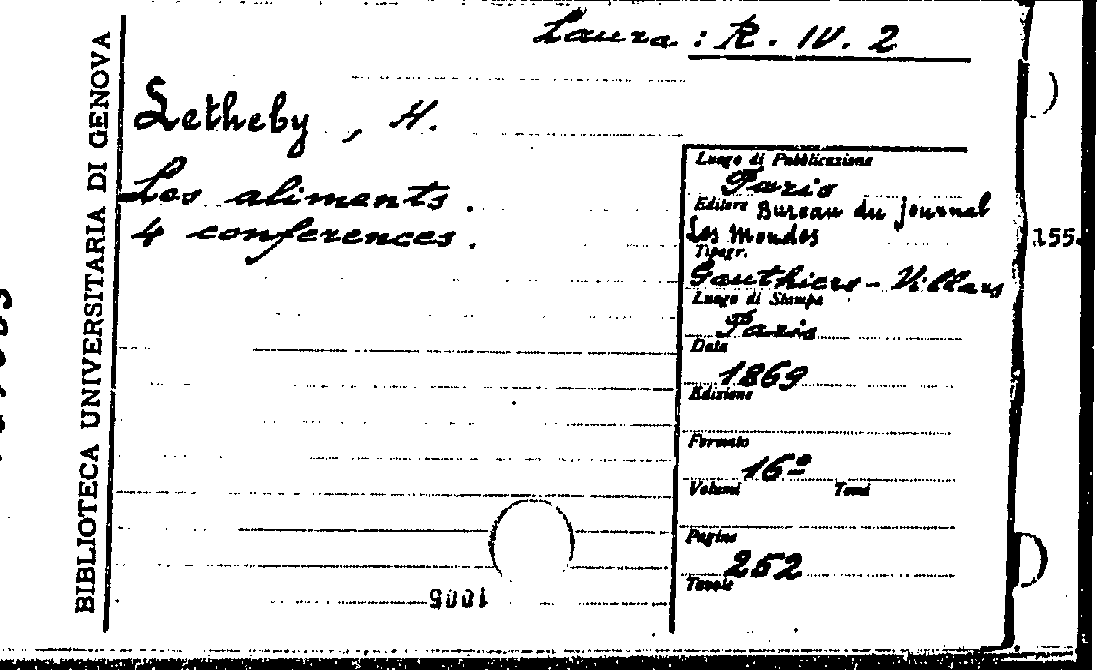 Laura : R. IV. 2
BIBLIOTECA UNIVERSITARIA DI GENOVA
Letheby, H.
Les aliments.
4 conferences.
Luogo di Pubblicazione
Paris
Editore Bureau du journal
Les Mondes
Tipogr.
Gauthiers-Villars
Luogo di Stampa
Paris
Data
1869
Edizione
Formato
16º
Volumi Tomi
Pagine
252
Tavole
155.